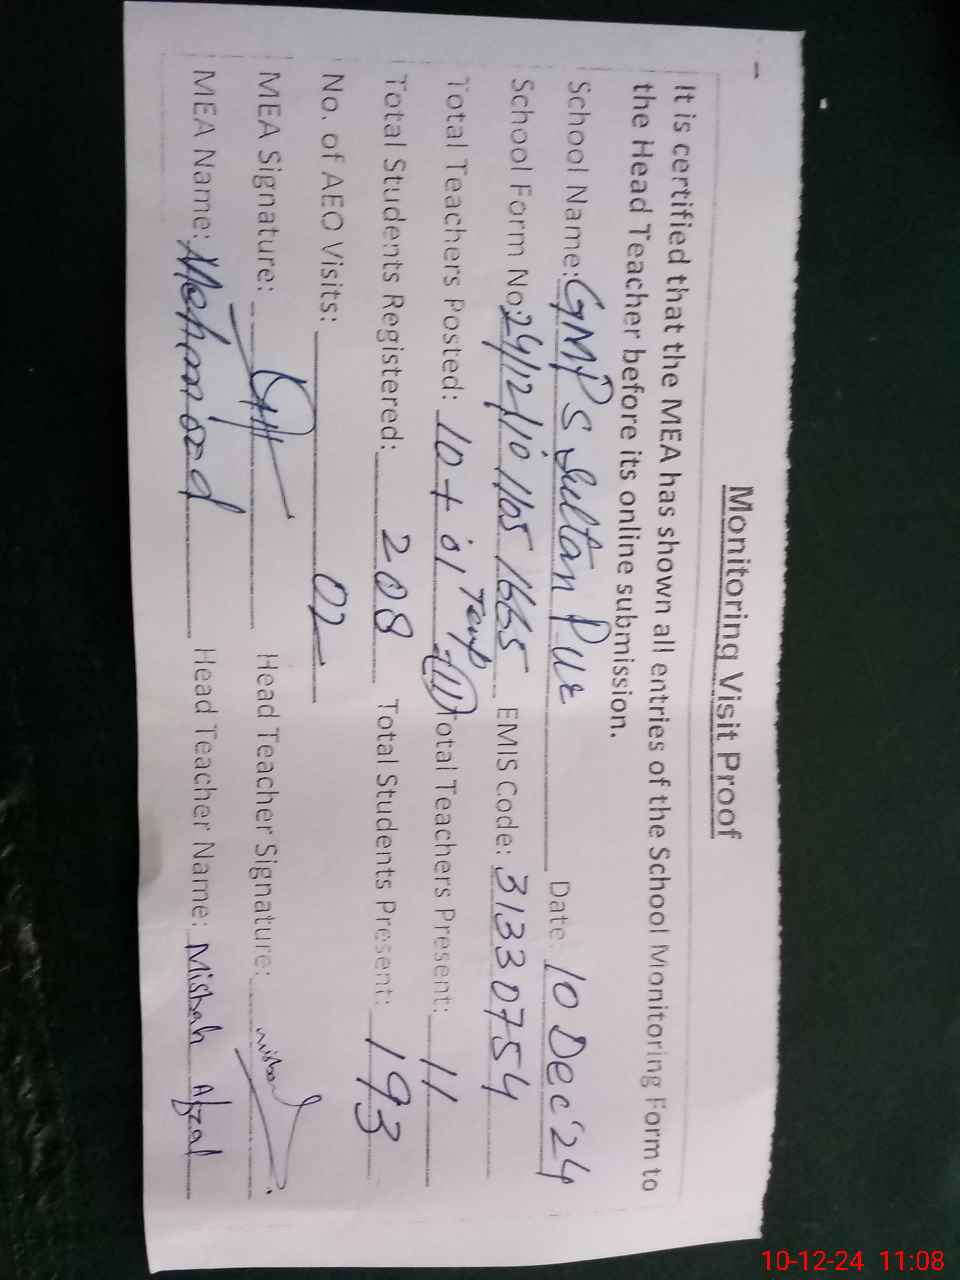 Monitoring Visit Proof
It is certified that the MEA has shown all entries of the School Monitoring Form to
the Head Teacher before its online submission.
School Name: GMPS Sultan Pur Date: 10 Dec '24
School Form No: 24/12/10/165/1665 EMIS Code: 31330754
Total Teachers Posted: 10 + 01 Temp (11) Total Teachers Present: 11
Total Students Registered: 208 Total Students Present: 193
No. of AEO Visits: 02
MEA Signature: Head Teacher Signature: Misbah
MEA Name: Mehmood Head Teacher Name: Misbah Afzal
10-12-24 11:08